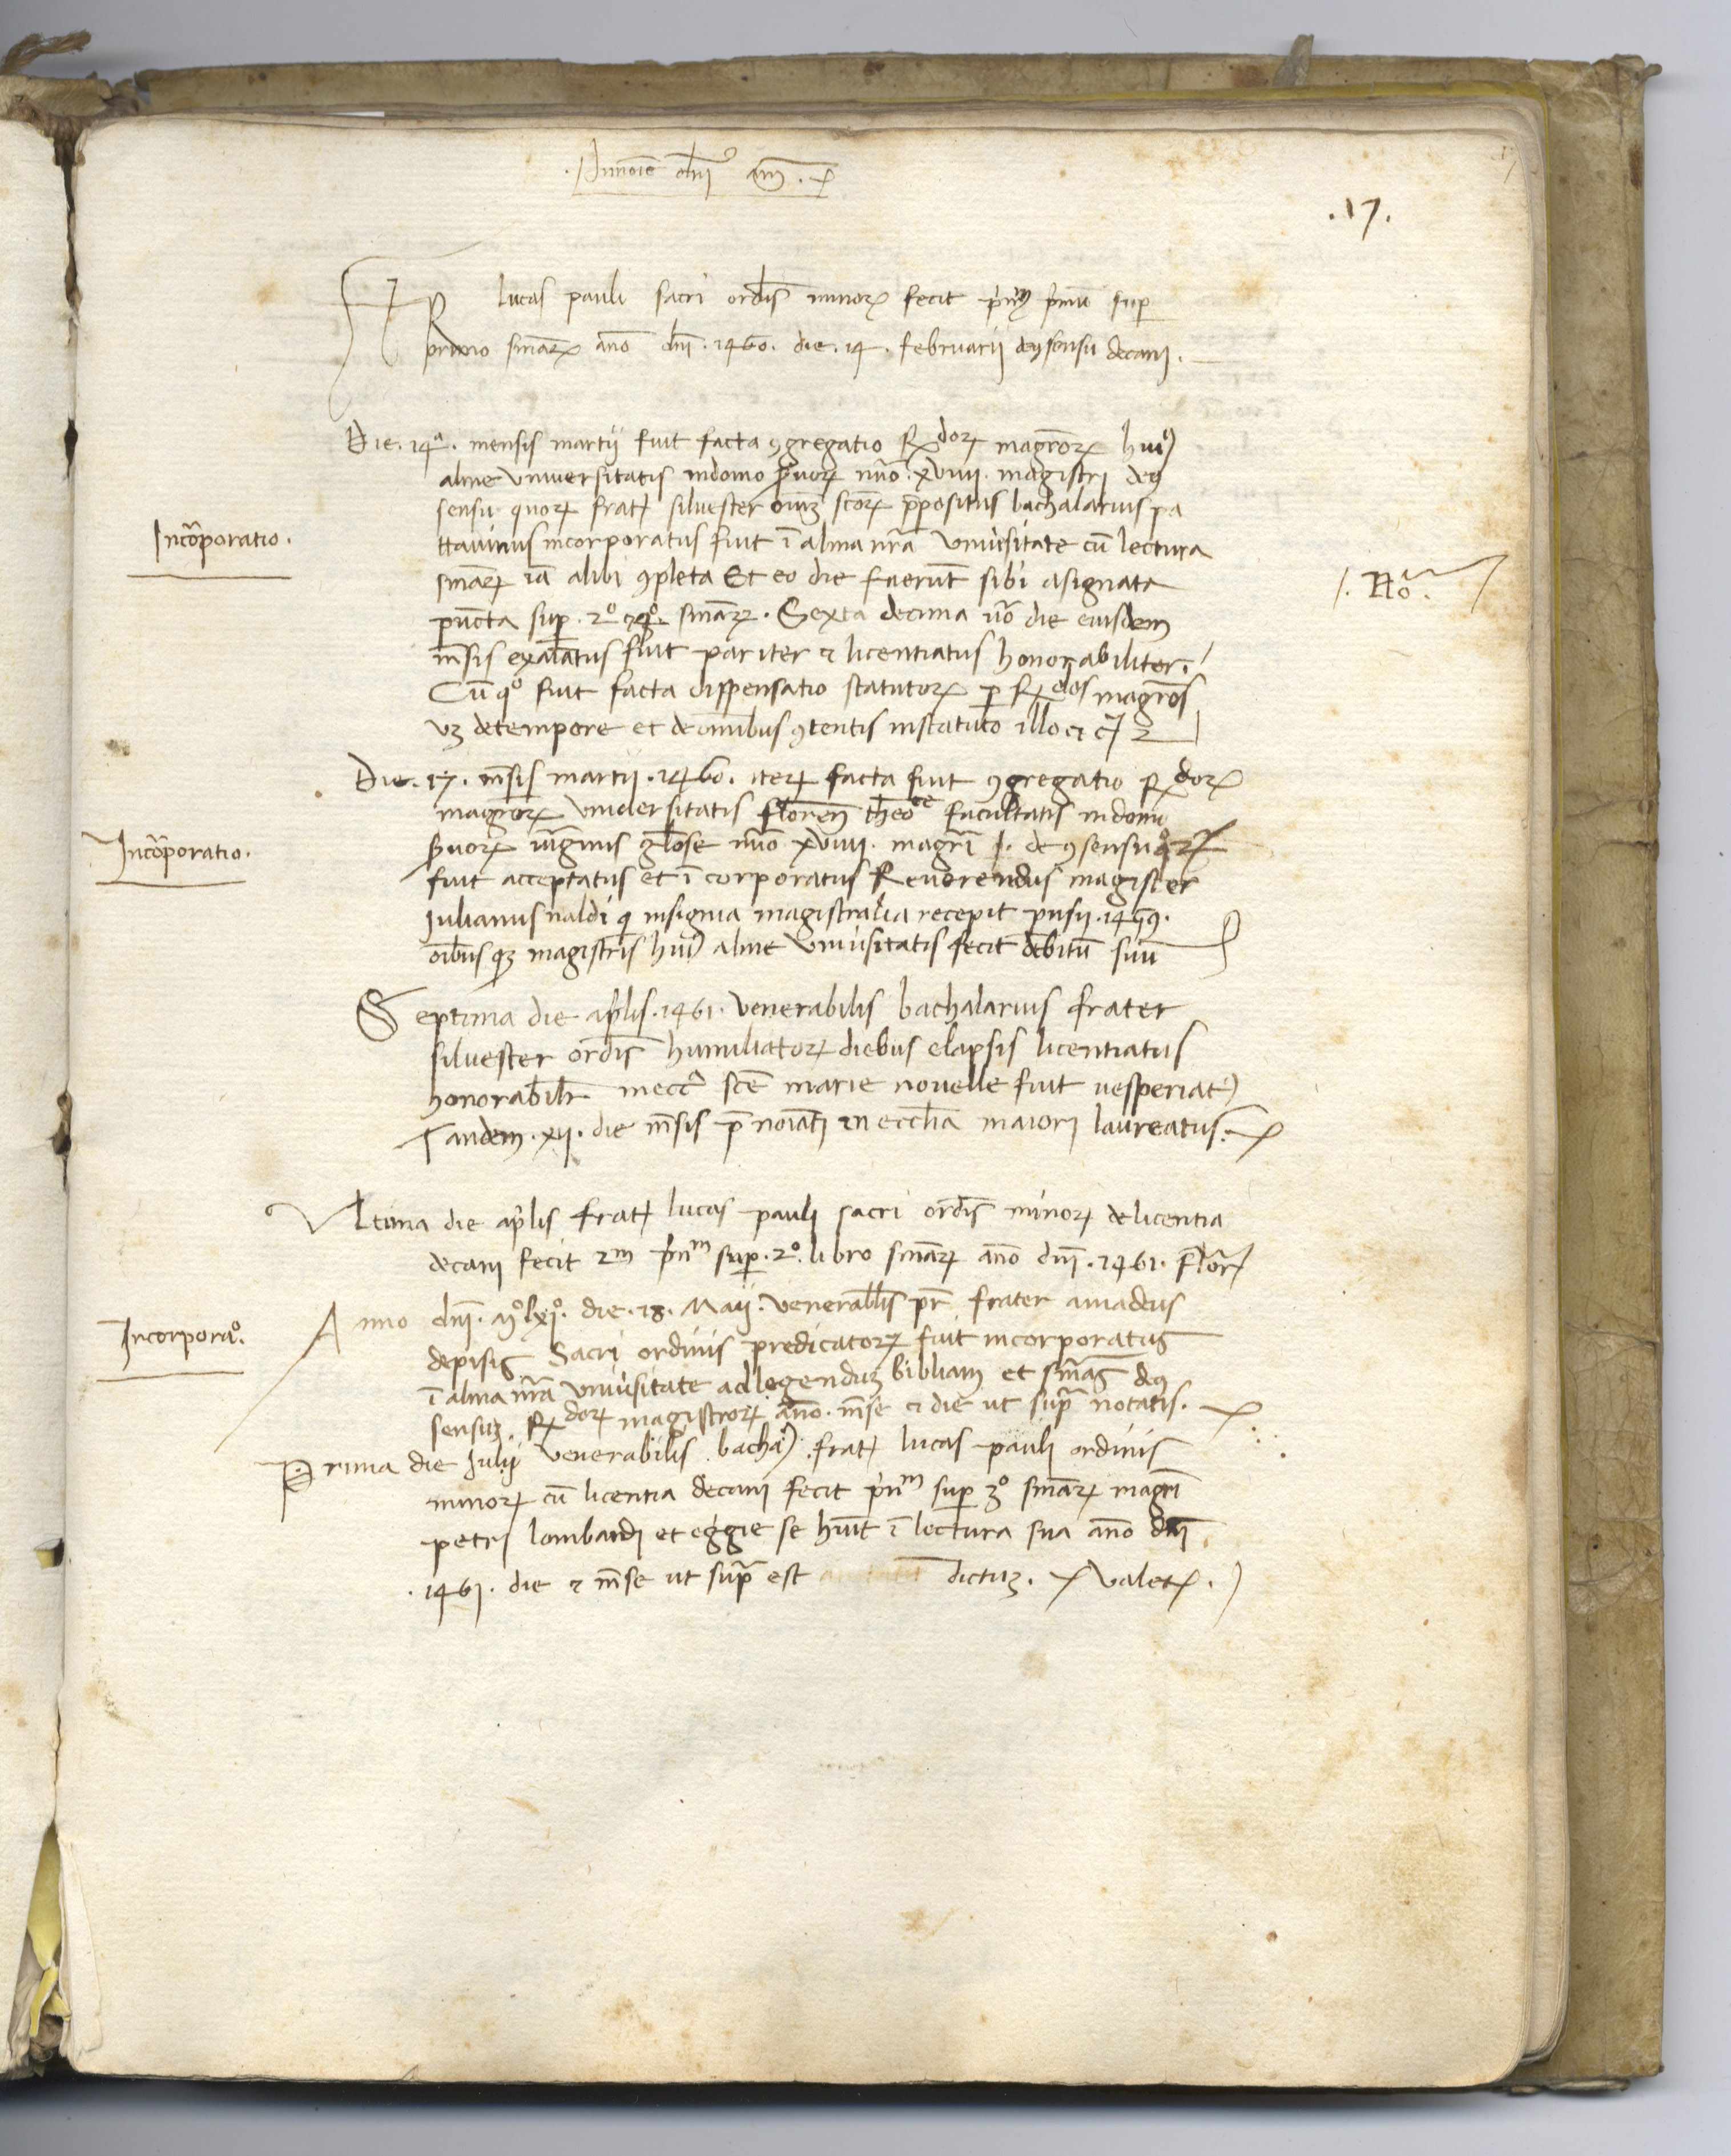 In noīe dnī am̄.
.17.
Fr lucas pauli sacri ordīs minoꝝ fecit prīn̄ᵐ primū suꝑ
primo smāꝝ ān̄o dnī .1460. die .14. februarii de ꝯsensu decani.
Die .14ᵃ. mensis martii fuit facta ꝯgregatio Rᵈoꝝ magrōꝝ huiꝰ
alme vniversitatis indomo ẜuoꝝ nūo xviiii. magistri de ꝯ
sensu quoꝝ frat̄ silvester oīuꝫ scōꝝ p̄positus bachalarius pa
Incōrporatio.
ttavinus incorporatus fuit ī alma nrā Univ̄sitate cū lectura
smāꝝ iā alibi ꝯpleta Et eo die fuerūt sibi asignata
/. Noᵃ.
pūncta suꝑ .2º ⁊ 4º. smāꝝ. Sexta decima v̄o die eiusdem
m̄sis exaīatus fuit pariter ⁊ licentiatus honorabiliter.
Cū qº fuit facta dispensatio statutoꝝ ꝑ Rᵈos magrōs
vꝫ detempore et de omībus ꝯtentis instatuto illo ⁊ c̄
Die .17. m̄sis martii .1460. iteꝝ facta fuit ꝯgregatio Rᵈoꝝ
magrōꝝ vniversitatis florēn thēoᶜᵉ facultatis in domo
Incōrporatio.
ẜuoꝝ vīrginis glōse nūo xviiii. magrī . de ꝯsensu qºꝝ
fuit acceptatus et ī corporatus Reverendus magister
Iulianus naldi q̄ insignia magistralia recepit
oībus qꝫ magistris huiꝰ alme Univ̄sitatis fecit debitū suū
Septima die aplīs .1461. venerabilis bachalarius frater
silvester ordīs humiliatoꝝ diebus elapsis licentiatus
honorabilr̄ in eccª scē marie novelle fuit vesperiatꝰ
Tandem .xii. die m̄sis p̄ noīati in ecclīa maiori laureatus.
Ultima die aplīs frat̄ lucas pauli sacri ordīs minoꝝ delicentia
decani fecit 2ᵐ prīnᵐ suꝑ .2º. libro smāꝝ ān̄o dnī .1461. Flōr
Anno dnī. Mº lxiº. die .18. Maii. venerabīlis pr̄ frater amadeus
Incorporaº.
depisis Sacri ordinis predicatoꝝ fuit incorporatus
ī alma nrā Univ̄sitate ad legenduꝫ bibliam et smās de ꝯ
sensuꝫ Rᵈoꝝ magistroꝝ ān̄o. m̄se ⁊ die ut suprā notatis.
Prima die Iulii venerabilis bachaꝰ. frat̄ lucas pauli ordinis
minoꝝ cū licentia decani fecit prīnᵐ suꝑ 3º smāꝝ magrī
petri lombardi et eḡgie se hūit ī lectura sua ān̄o dnī
.1461. die ⁊ m̄se ut suprā est dictuꝫ. Valete.